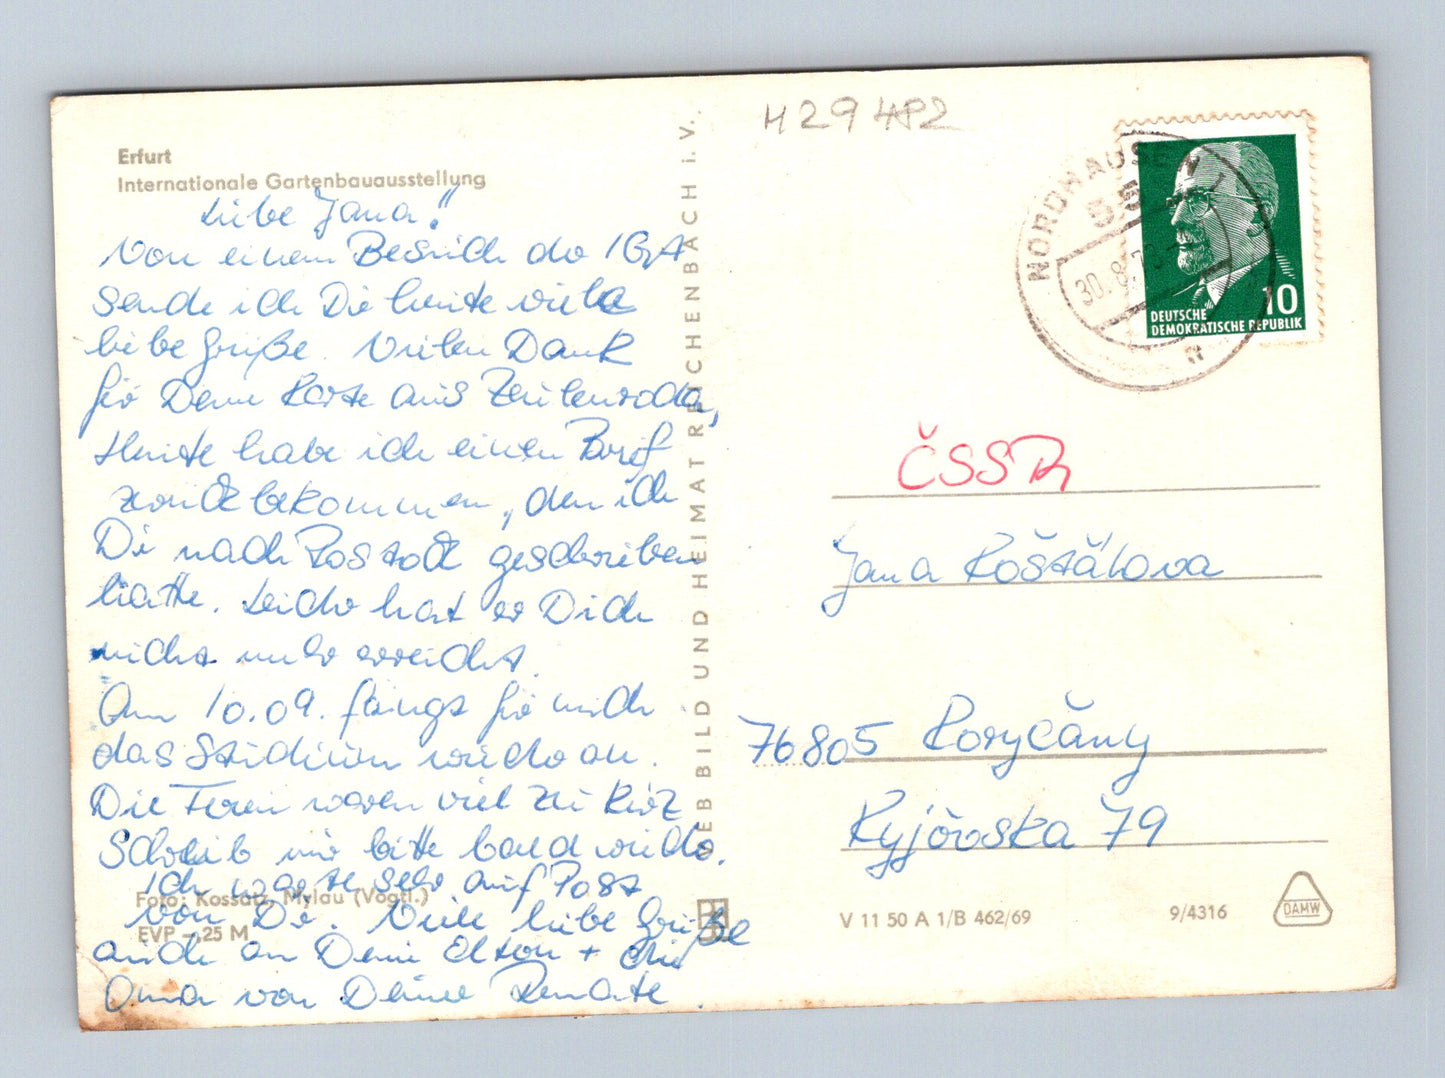 H29482
Erfurt
Internationale Gartenbauausstellung
Liebe Jana!
Von einem Besuch der IGA
sende ich Dir heute viele
liebe Grüße. Vielen Dank
für Deine Karte aus Zeulenroda,
Heute habe ich einen Brief
zurückbekommen, den ich
Dir nach Rostock geschrieben
hatte. Leider hat er Dich
nicht mehr erreicht.
Am 10.09. fängt für mich
das Studium wieder an.
Die Ferien waren viel zu kurz
Schreib mir bitte bald wieder.
Ich warte sehr auf Post
von Dir. Viele liebe Grüße
auch an Deine Eltern +
Oma von Deiner Renate.
Foto: Kossatz, Mylau (Vogtl.)
EVP –,25 M
VEB BILD UND HEIMAT REICHENBACH I. V.
NORDHAUSEN 1
55
30.8.73
n
10
DEUTSCHE
DEMOKRATISCHE REPUBLIK
ČSSR
Jana Košťálova
76805 Koryčany
Kyjovska 79
V 11 50 A 1/B 462/69
9/4316
DAMW